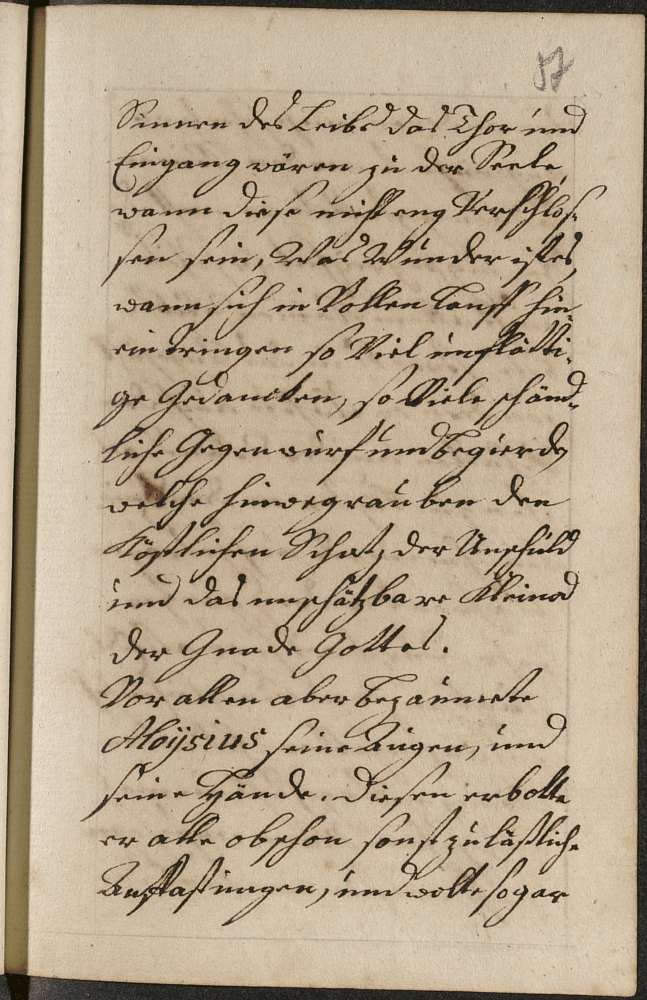 57
Sinnen des Leibs das Thor und
Eingang wären zu der Seele,
wann diese nicht eng Verschlos-
sen sein, Was Wunder ist es,
wann sich in Vollen Lauff hin-
ein dringen so Viel unflätti-
ge Gedancken, so Viele schänd-
liche Gegenwurf und begierden
welche hinwegrauben den
Köstlichen Schatz der Unschuld
und das unschätzbare Kleinod
der Gnade Gottes.
Vor allen aber bezäumete
Aloÿsius seine Augen, und
seine Hände. Diesen
er alle obschon sonst zuläßliche
und wolte sogar